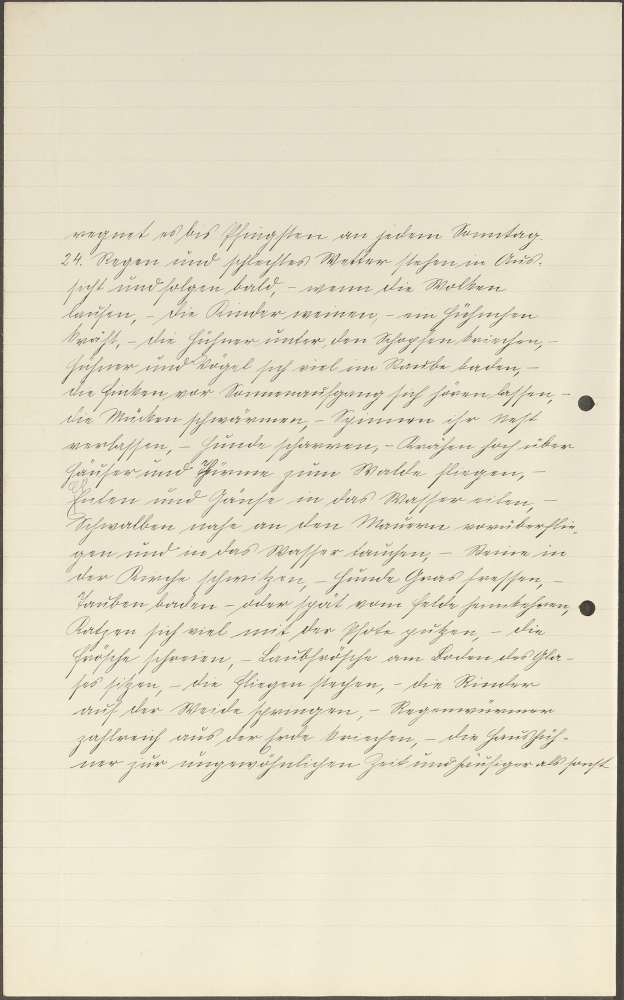 regnet es bis Pfingsten an jedem Sonntag.
24. Regen und schlechtes Wetter stehen in Aus-
sicht und folgen bald, – wenn die Wolken
laufen, – die Kinder weinen, – ein Hühnchen
kräht, – die Hühner unter den Schopfen kriechen, –
Hühner und Vögel sich viel im Staube baden, –
die Finken vor Sonnenaufgang sich hören lassen, –
die Mücken schwärmen, – Spinnen ihr Nest
verlassen, – Hunde scharren, – Krähen hoch über
Häuser und Türme zum Walde fliegen, –
Enten und Gänse in das Wasser eilen, –
Schwalben nahe an den Mauern vorüberflie-
gen und in das Wasser tauchen, – Steine in
der Kirche schwitzen, – Hunde Gras fressen, –
Tauben baden – oder spät vom Felde heimkehren,
Katzen sich viel mit der Pfote putzen, – die
Frösche schreien, – Laubfrösche am Boden des Gla-
ses sitzen, – die Fliegen stechen, – die Rinder
auf der Weide springen, – Regenwürmer
zahlreich aus der Erde kriechen, – die Haushüh-
ner zur ungewöhnlichen Zeit und häufiger als sonst